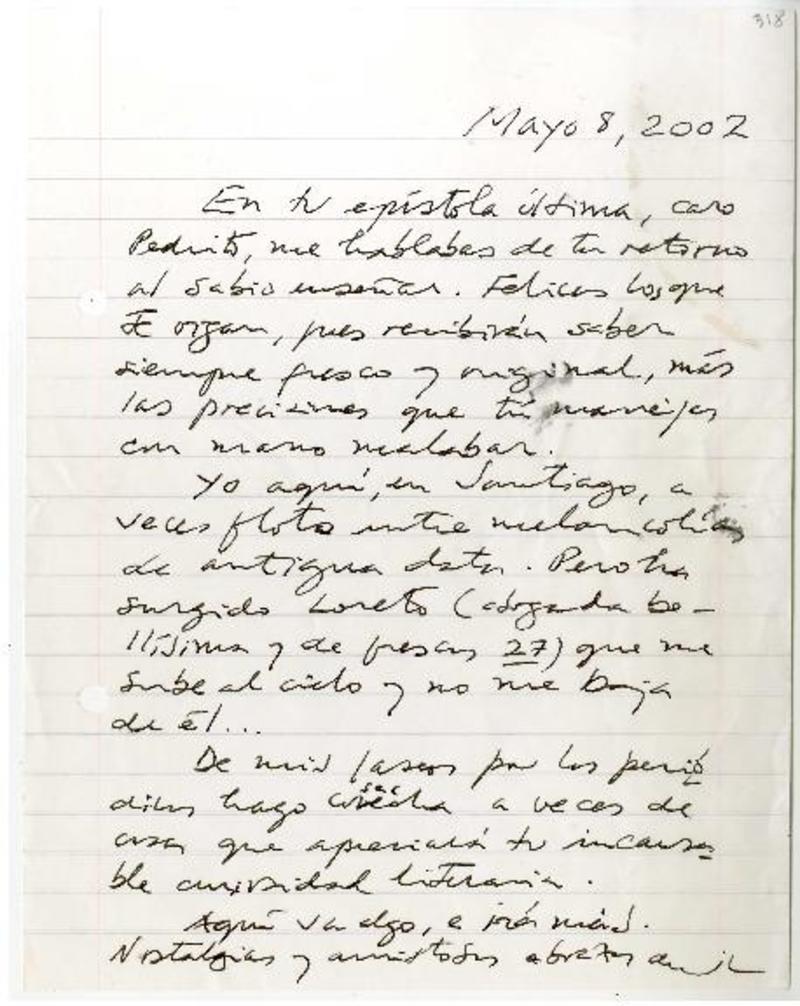 318
Mayo 8, 2002
En tu epístola última, caro
Pedrito, me hablabas de tu retorno
al sabio enseñar. Felices los que
te oigan, pues recibirán saber
siempre fresco y original, más
las precisiones que tú manejas
con mano malabar.
Yo aquí, en Santiago, a
veces floto entre melancolías
de antigua data. Pero ha
surgido Loreto (abogada be-
llísima y de frescas 27) que me
sube al cielo y no me baja
de él...
De mis paseos por los perió
dicos hago cosecha a veces de
cosas que apreciará tu incansa
ble curiosidad literaria.
Aquí va algo, e irá más.
Nostalgias y amistosos abrazos de